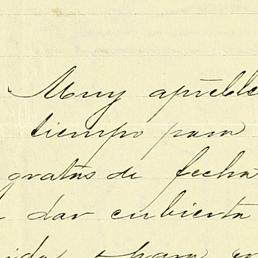 Muy apreble
tiempo para
gratas de fecha
dar cubierta